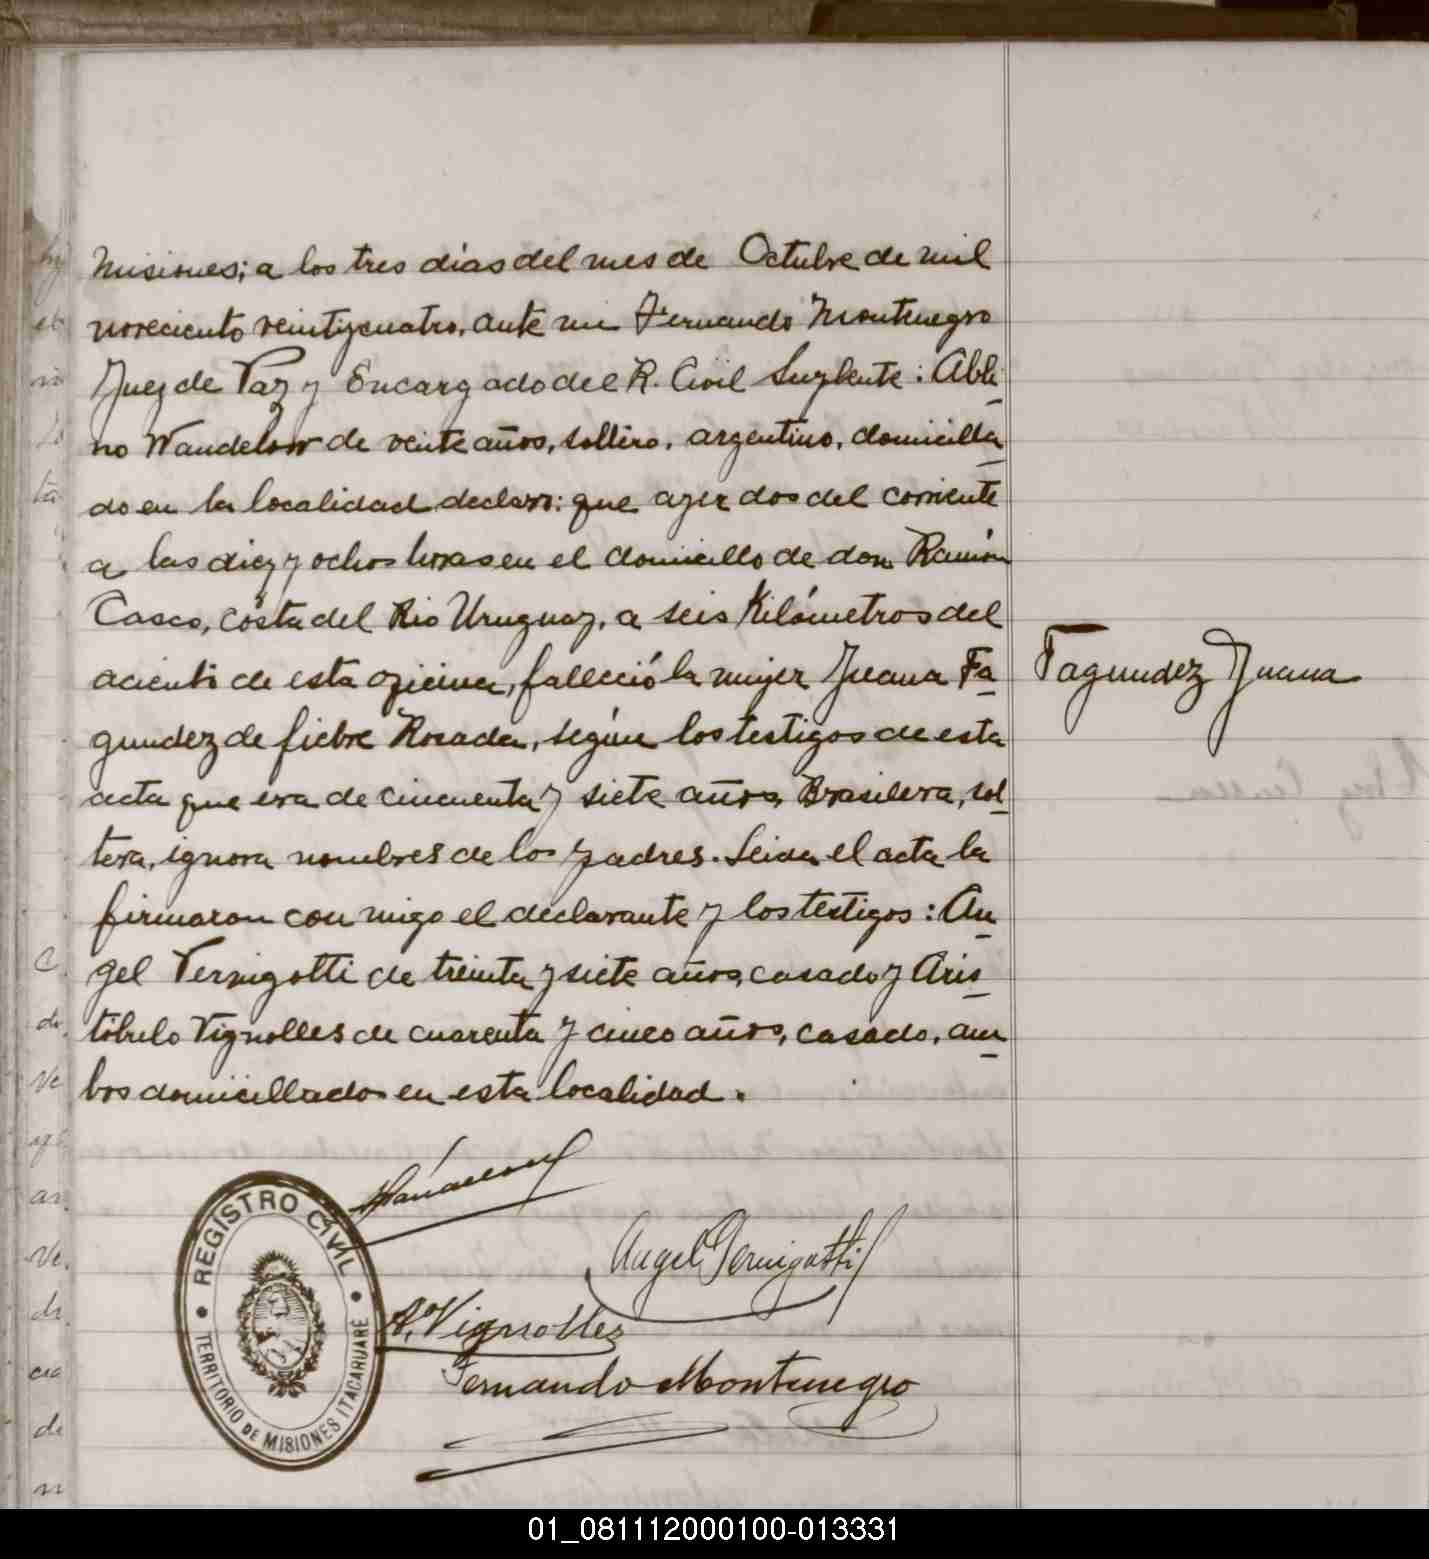 Misiones; a los tres días del mes de Octubre de mil
noveciento veintycuatro, ante mi Fernando Montenegro
Juez de Paz y Encargado del R. Civil Suplente: Abli-
no Wandelow de veinte años, soltero, argentino, domicilla-
do en la localidad declaro: que ayer dos del corriente
a las diez y ochos horas en el domicillo de don Ramón
Casco, costa del Rio Uruguay, a seis Kilómetros del
aciento de esta oficina, falleció la mujer Juana Fa-
gundez de fiebre Rosada, según los testigos de esta
acta que era de cincuenta y siete años, Brasilera, sol-
tera, ignora nombres de los padres. Leida el acta la
firmaron con migo el declarante y los testigos: An-
gel Pernigotti de treinta y siete años, casado y Aris-
tóbulo Vignolles de cuarenta y cinco años, casado, am-
bos domicillados en esta localidad.
Fagundez Juana
Angel Pernigotti
A. Vignolles
Fernando Montenegro
REGISTRO CIVIL
TERRITORIO DE MISIONES ITACARUARÉ
01_081112000100-013331